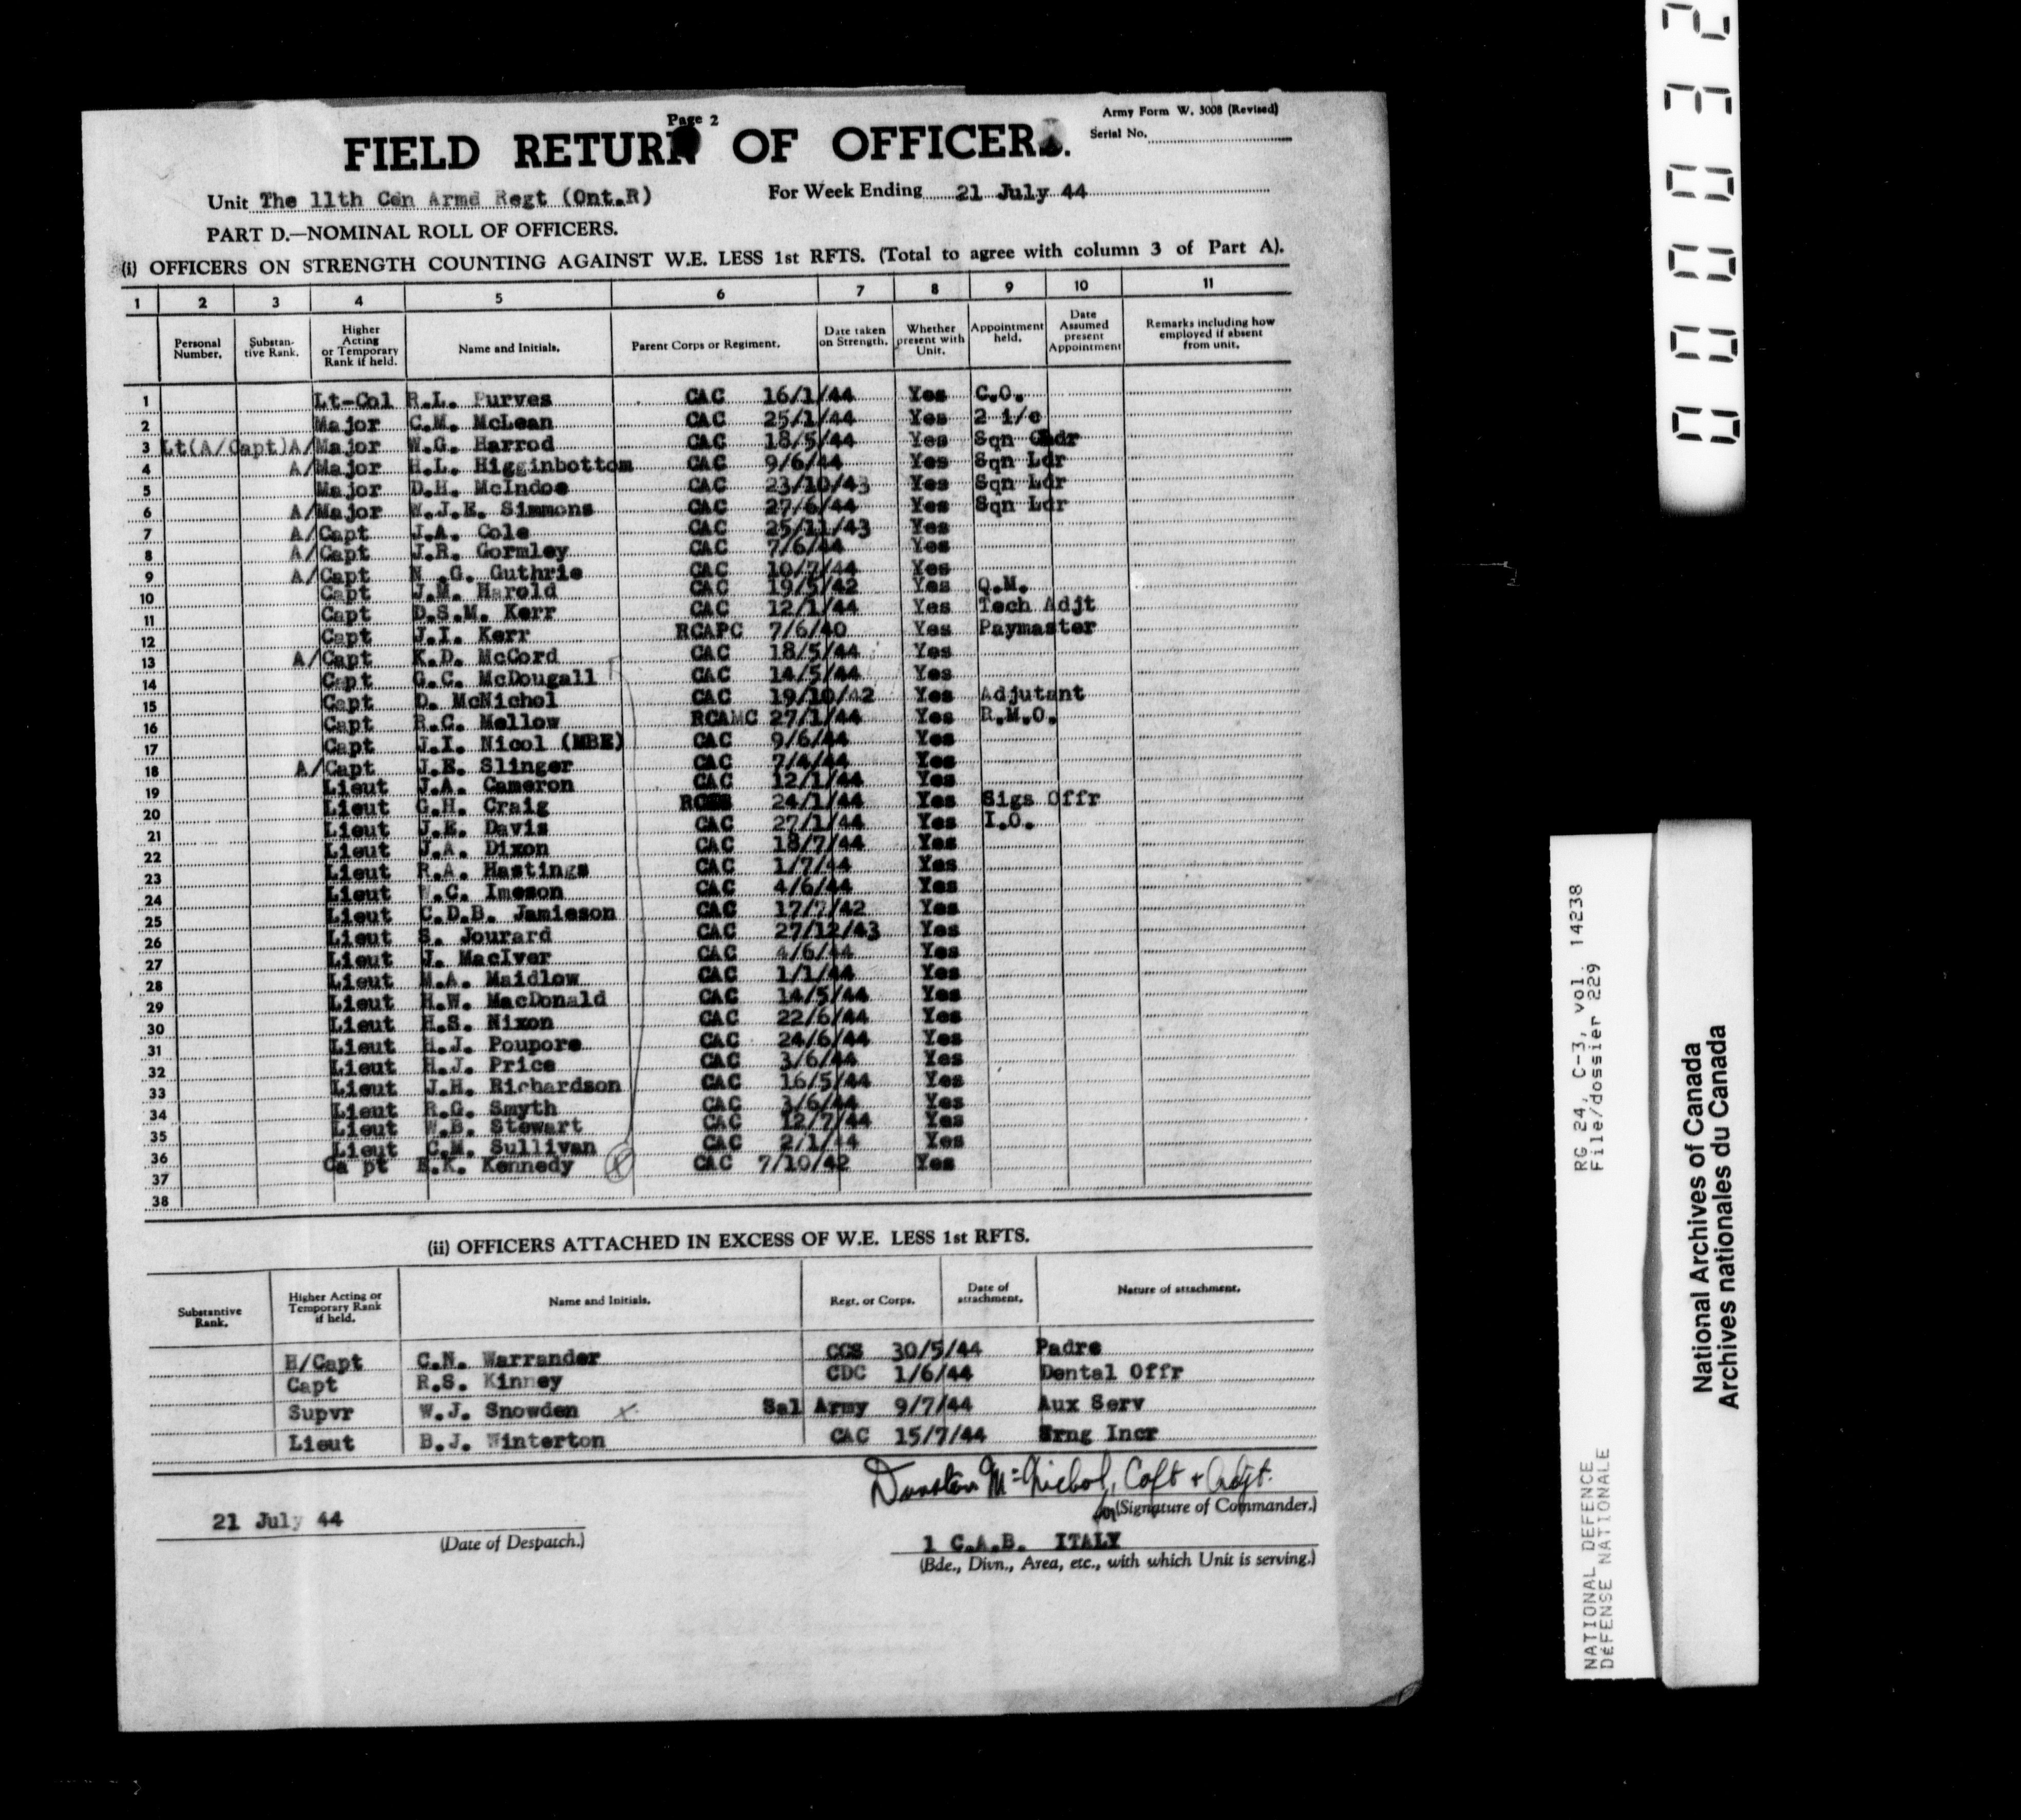 Page 2
Army Form W. 3008 (Revised)
FIELD RETURN OF OFFICERS.
Serial No.
Unit The 11th Cdn Armd Regt (Ont.R) For Week Ending 21 July 44
PART D.—NOMINAL ROLL OF OFFICERS.
(i) OFFICERS ON STRENGTH COUNTING AGAINST W.E. LESS 1st RFTS. (Total to agree with column 3 of Part A).
1 2 3 4 5 6 7 8 9 10 11
Personal Number. Substan-tive Rank. Higher Acting or Temporary Rank if held. Name and Initials. Parent Corps or Regiment. Date taken on Strength. Whether present with Unit. Appointment held. Date Assumed present Appointment Remarks including how employed if absent from unit.
1 Lt-Col R.L. Purves CAC 16/1/44 Yes C.O.
2 Major C.M. McLean CAC 25/1/44 Yes 2 i/c
3 Lt(A/Capt)A/Major W.G. Harrod CAC 18/5/44 Yes Sqn
4 A/Major H.L. Higginbottom CAC 9/6/44 Yes Sqn Ldr
5 Major D.H. McIndoe CAC 23/10/43 Yes Sqn Ldr
6 A/Major W.J.E. Simmons CAC 27/6/44 Yes Sqn Ldr
7 A/Capt J.A. Cole CAC 25/11/43 Yes
8 A/Capt J.R. Gormley CAC 7/6/44 Yes
9 A/Capt N .G. Guthrie CAC 10/7/44 Yes
10 Capt J.M. Harold CAC 19/5/42 Yes Q.M.
11 Capt D.S.M. Kerr CAC 12/1/44 Yes Tech Adjt
12 Capt J.I. Kerr RCAPC 7/6/40 Yes Paymaster
13 A/Capt K.D. McCord CAC 18/5/44 Yes
14 Capt G.C. McDougall CAC 14/5/44 Yes
15 Capt D. McNichol CAC 19/10/42 Yes Adjutant
16 Capt R.C. Mellow RCAMC 27/1/44 Yes R.M.O.
17 Capt J.I. Nicol (MBE) CAC 9/6/44 Yes
18 A/Capt J.E. Slinger CAC 7/4/44 Yes
19 Lieut J.A. Cameron CAC 12/1/44 Yes
20 Lieut G.H. Craig 24/1/44 Yes Sigs Offr
21 Lieut J.E. Davis CAC 27/1/44 Yes I.O.
22 Lieut J.A. Dixon CAC 18/7/44 Yes
23 Lieut R.A. Hastings CAC 1/7/44 Yes
24 Lieut W.C. Imeson CAC 4/6/44 Yes
25 Lieut C.D.B. Jamieson CAC 17/7/42 Yes
26 Lieut S. Jourard CAC 27/12/43 Yes
27 Lieut J. MacIver CAC 4/6/44 Yes
28 Lieut M.A. Maidlow CAC 1/1/44 Yes
29 Lieut H.W. MacDonald CAC 14/5/44 Yes
30 Lieut H.S. Nixon CAC 22/6/44 Yes
31 Lieut H.J. Poupore CAC 24/6/44 Yes
32 Lieut H.J. Price CAC 3/6/44 Yes
33 Lieut J.H. Richardson CAC 16/5/44 Yes
34 Lieut R.G. Smyth CAC 3/6/44 Yes
35 Lieut W.B. Stewart CAC 12/7/44 Yes
36 Lieut C.M. Sullivan CAC 2/1/44 Yes
37 Ca pt E.K. Kennedy CAC 7/10/42 Yes
38
(ii) OFFICERS ATTACHED IN EXCESS OF W.E. LESS 1st RFTS.
Substantive Rank. Higher Acting or Temporary Rank if held. Name and Initials. Regt. or Corps. Date of attachment. Nature of attachment.
H/Capt C.N. Warrander CCS 30/5/44 Padre
Capt R.S. Kinney CDC 1/6/44 Dental Offr
Supvr W.J. Snowden x Sal Army 9/7/44 Aux Serv
Lieut B.J. Winterton CAC 15/7/44 Incr
Dunstan McNichol, Capt + Adjt.
for (Signature of Commander.)
21 July 44
(Date of Despatch.)
1 C.A.B. ITALY
(Bde., Divn., Area, etc., with which Unit is serving.)
00032
RG 24, C-3, vol. 14238
File/dossier 229
NATIONAL DEFENCE
DÉFENSE NATIONALE
National Archives of Canada
Archives nationales du Canada